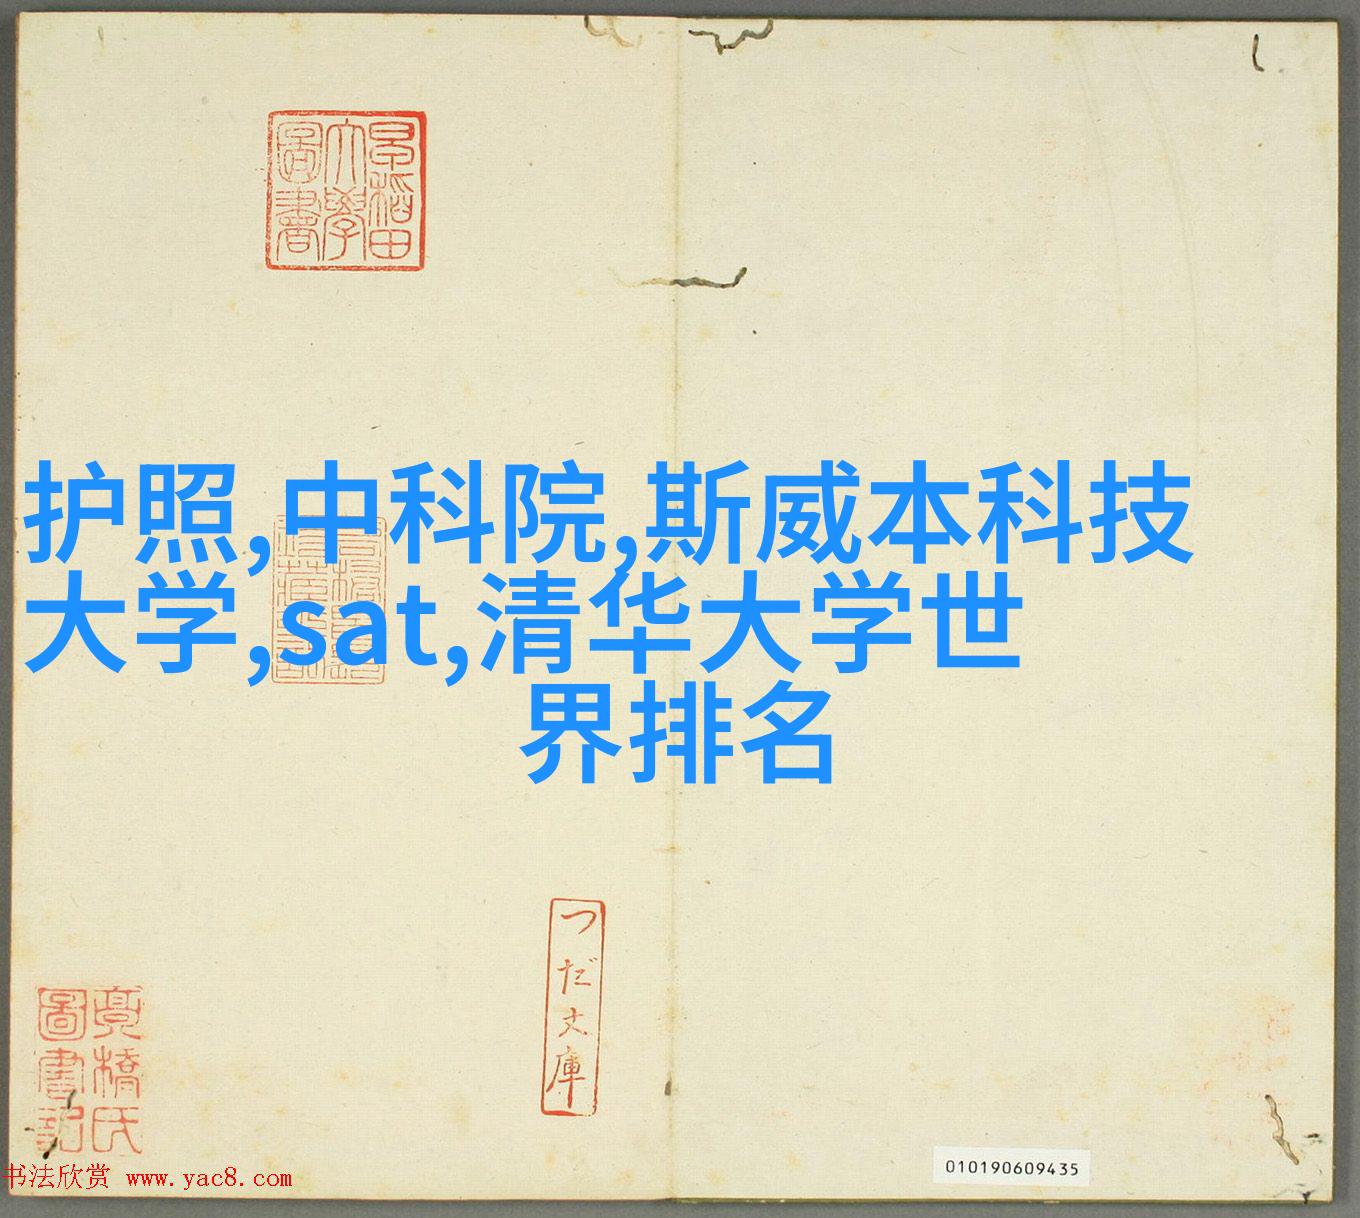 早稲田大學圖書
护照,中科院,斯威本科技
大学,sat,清华大学世
界排名
つだ文庫
圖書記
书法欣赏 www.yac8.com
010190609435